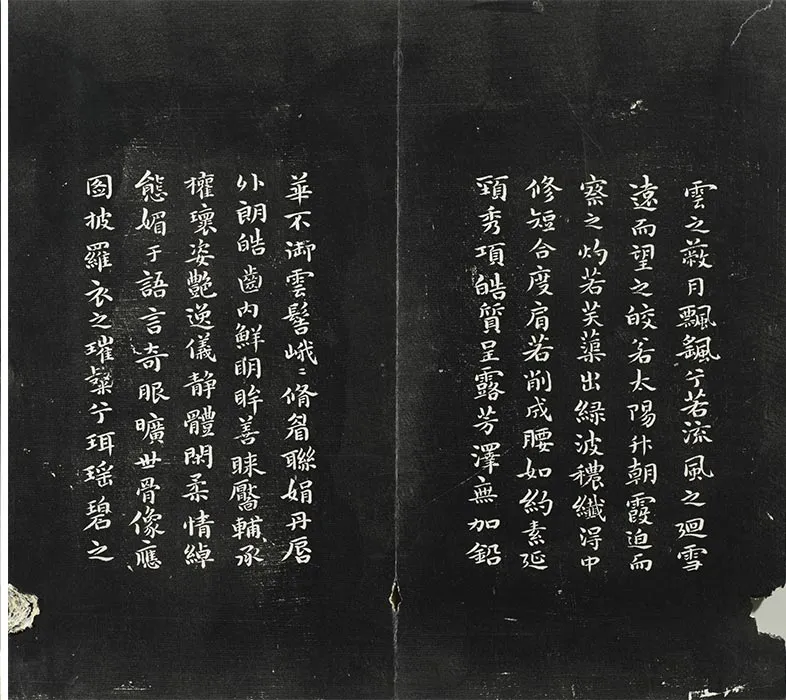 雲之蔽月飄飖兮若流風之迴雪
遠而望之皎若太陽升朝霞迫而
察之灼若芙蕖出緑波穠纖得中
修短合度肩若削成腰如約素延
頸秀項皓質呈露芳澤無加鉛
華不御雲髻峨〻脩眉聯娟丹唇
外朗皓齒内鮮明眸善睞靨輔承
權瓌姿艷逸儀静體閑柔情綽
態媚于語言奇服曠世骨像應
圖披羅衣之璀粲兮珥瑶碧之